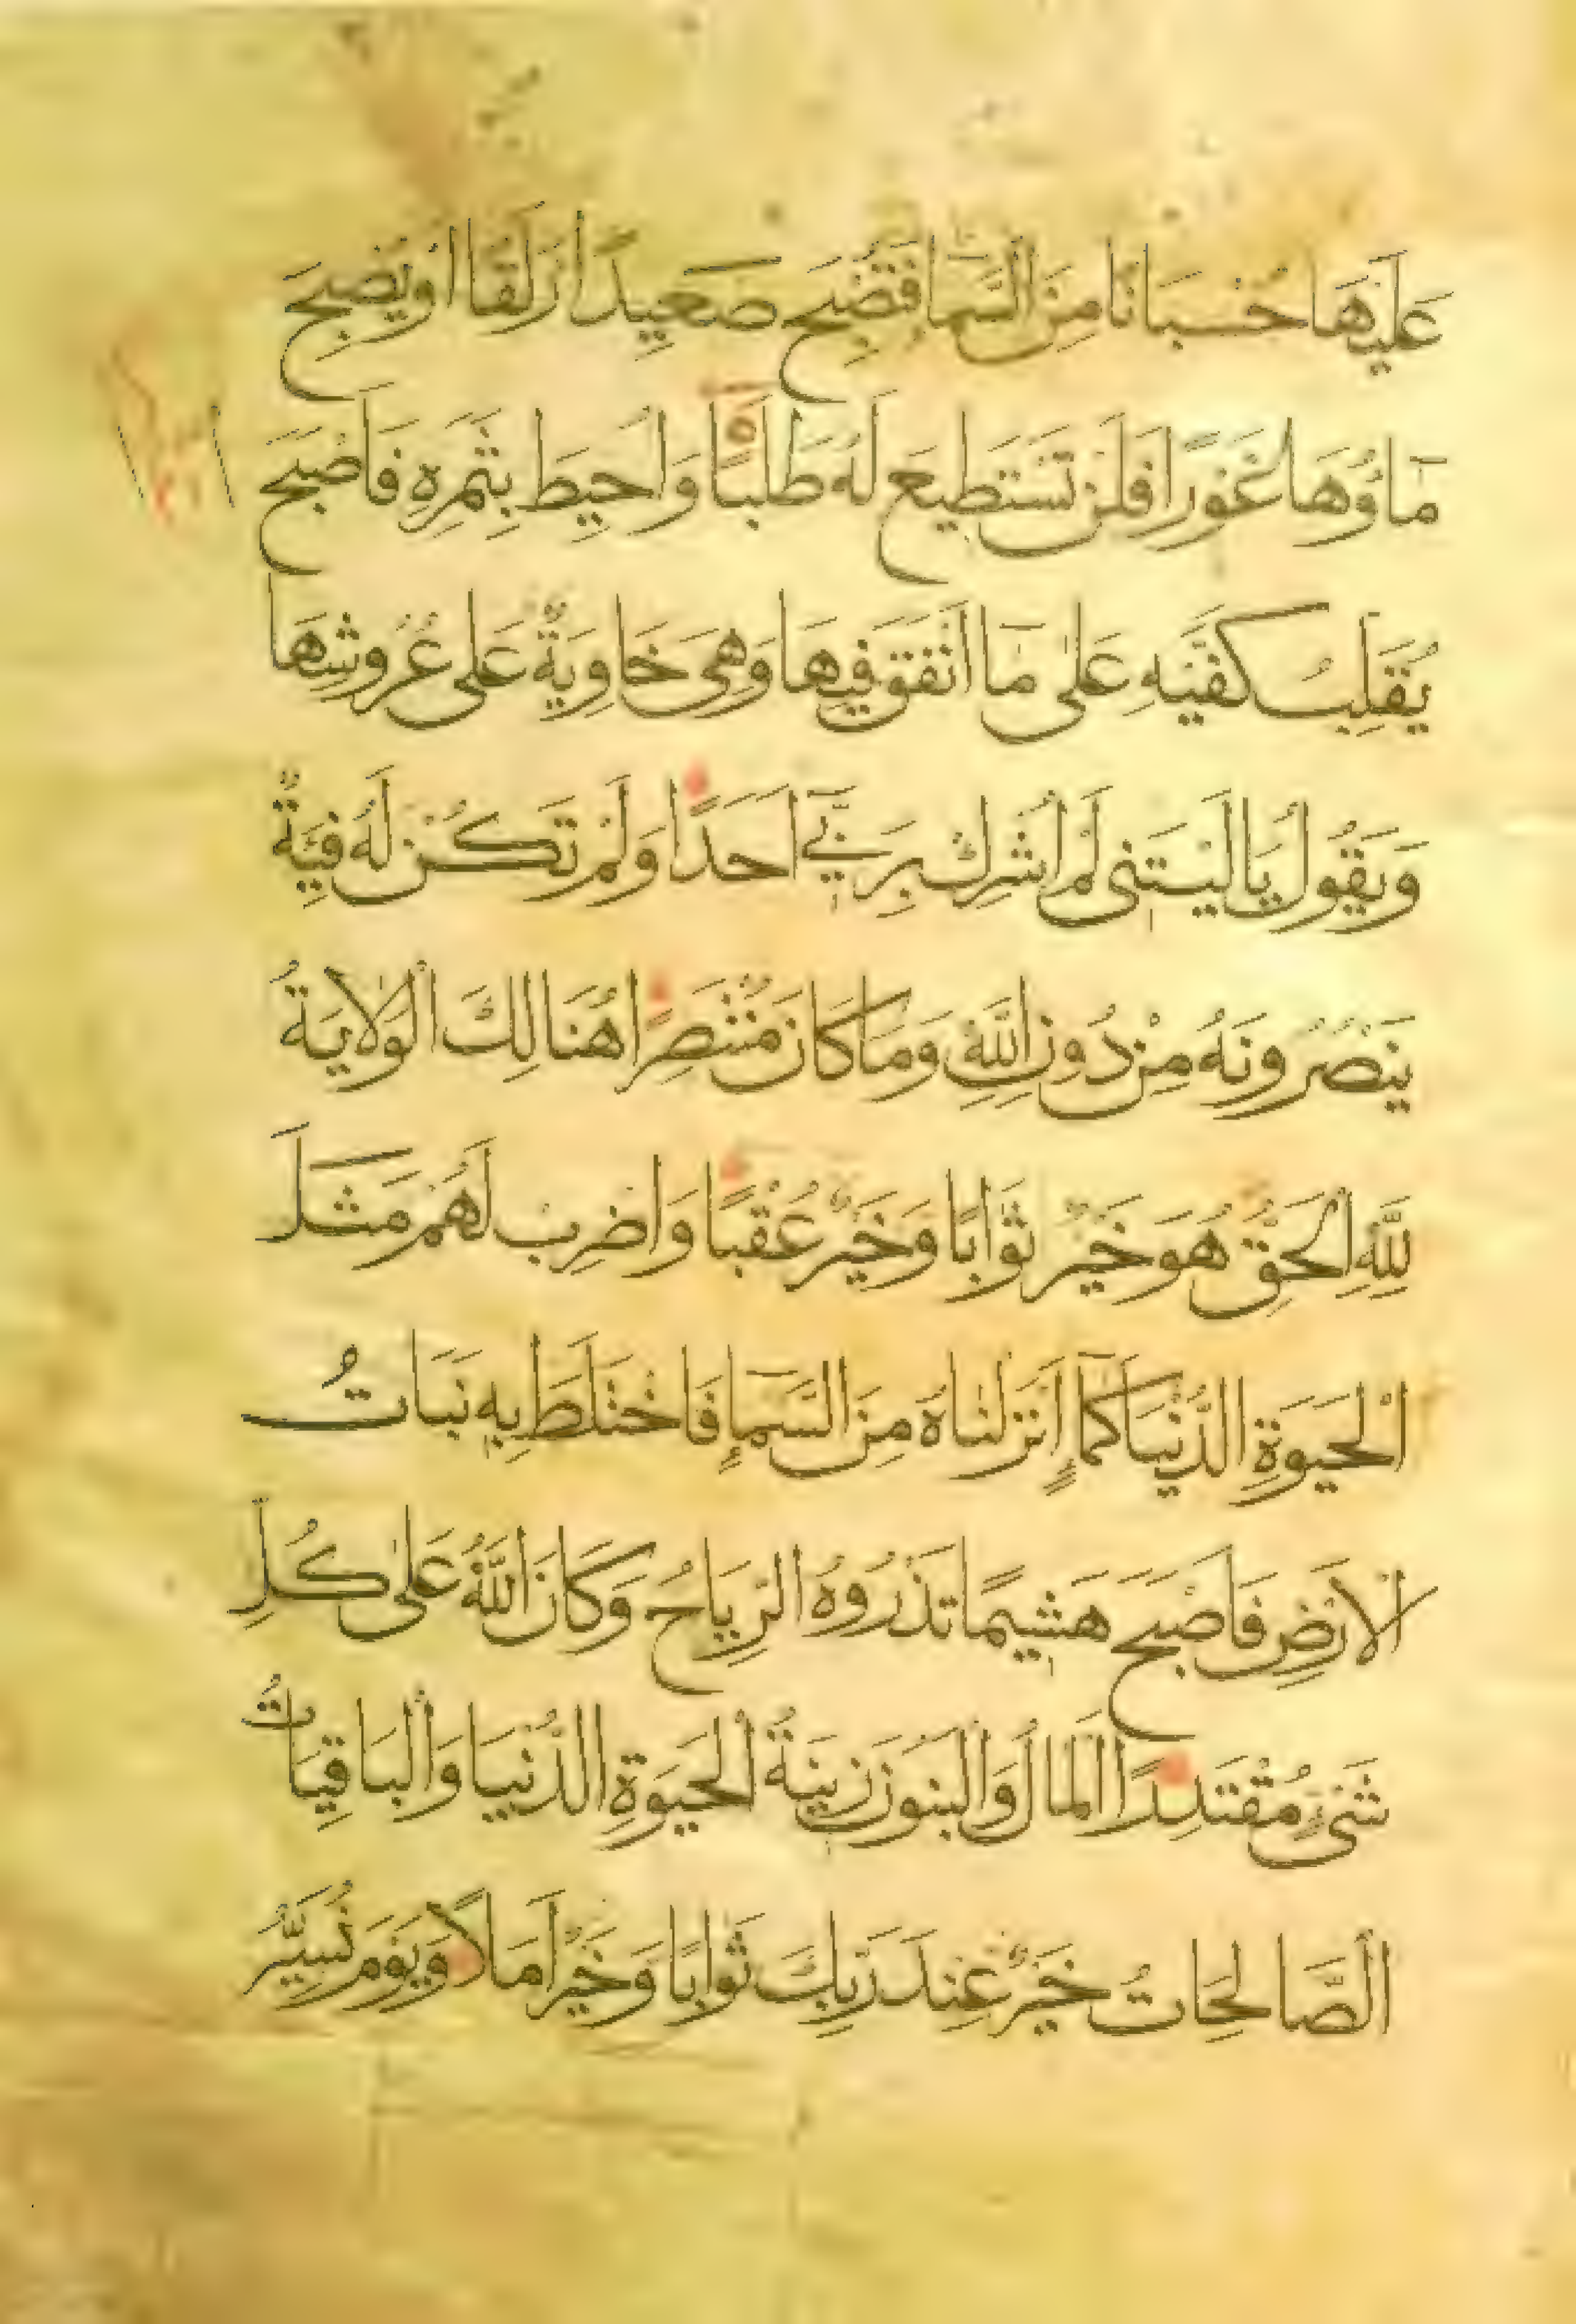 عَلَيْهَا حُسْبَانًا مِنَ السَّمَاءِ فَتُصْبِحَ صَعِيدًا زَلَقًا اَوْ يُصْبِحَ
مَاؤُهَا غَوْرًا فَلَنْ تَسْتَطِيعَ لَهُ طَلَبًا وَاُحِيطَ بِثَمَرِهِ فَاَصْبَحَ
يُقَلِّبُ كَفَّيْهِ عَلٰى مَا اَنْفَقَ فِيهَا وَهِىَ خَاوِيَةٌ عَلٰى عُرُوشِهَا
وَيَقُولُ يَالَيْتَنِى لَمْ اُشْرِكْ بِرَبِّى اَحَدًا وَلَمْ تَكُنْ لَهُ فِئَةٌ
يَنْصُرُونَهُ مِنْ دُونِ اللّٰهِ وَمَا كَانَ مُنْتَصِرًا هُنَالِكَ الْوَلَايَةُ
لِلّٰهِ الْحَقِّ هُوَ خَيْرٌ ثَوَابًا وَخَيْرٌ عُقْبًا وَاضْرِبْ لَهُمْ مَثَلَ
الْحَيٰوةِ الدُّنْيَا كَمَاءٍ اَنْزَلْنَاهُ مِنَ السَّمَاءِ فَاخْتَلَطَ بِهِ نَبَاتُ
الْاَرْضِ فَاَصْبَحَ هَشِيمًا تَذْرُوهُ الرِّيَاحُ وَكَانَ اللّٰهُ عَلٰى كُلِّ
شَىْءٍ مُقْتَدِرًا اَلْمَالُ وَالْبَنُونَ زِينَةُ الْحَيٰوةِ الدُّنْيَا وَالْبَاقِيَاتُ
الصَّالِحَاتُ خَيْرٌ عِنْدَ رَبِّكَ ثَوَابًا وَخَيْرٌ اَمَلًا وَيَوْمَ نُسَيِّرُ